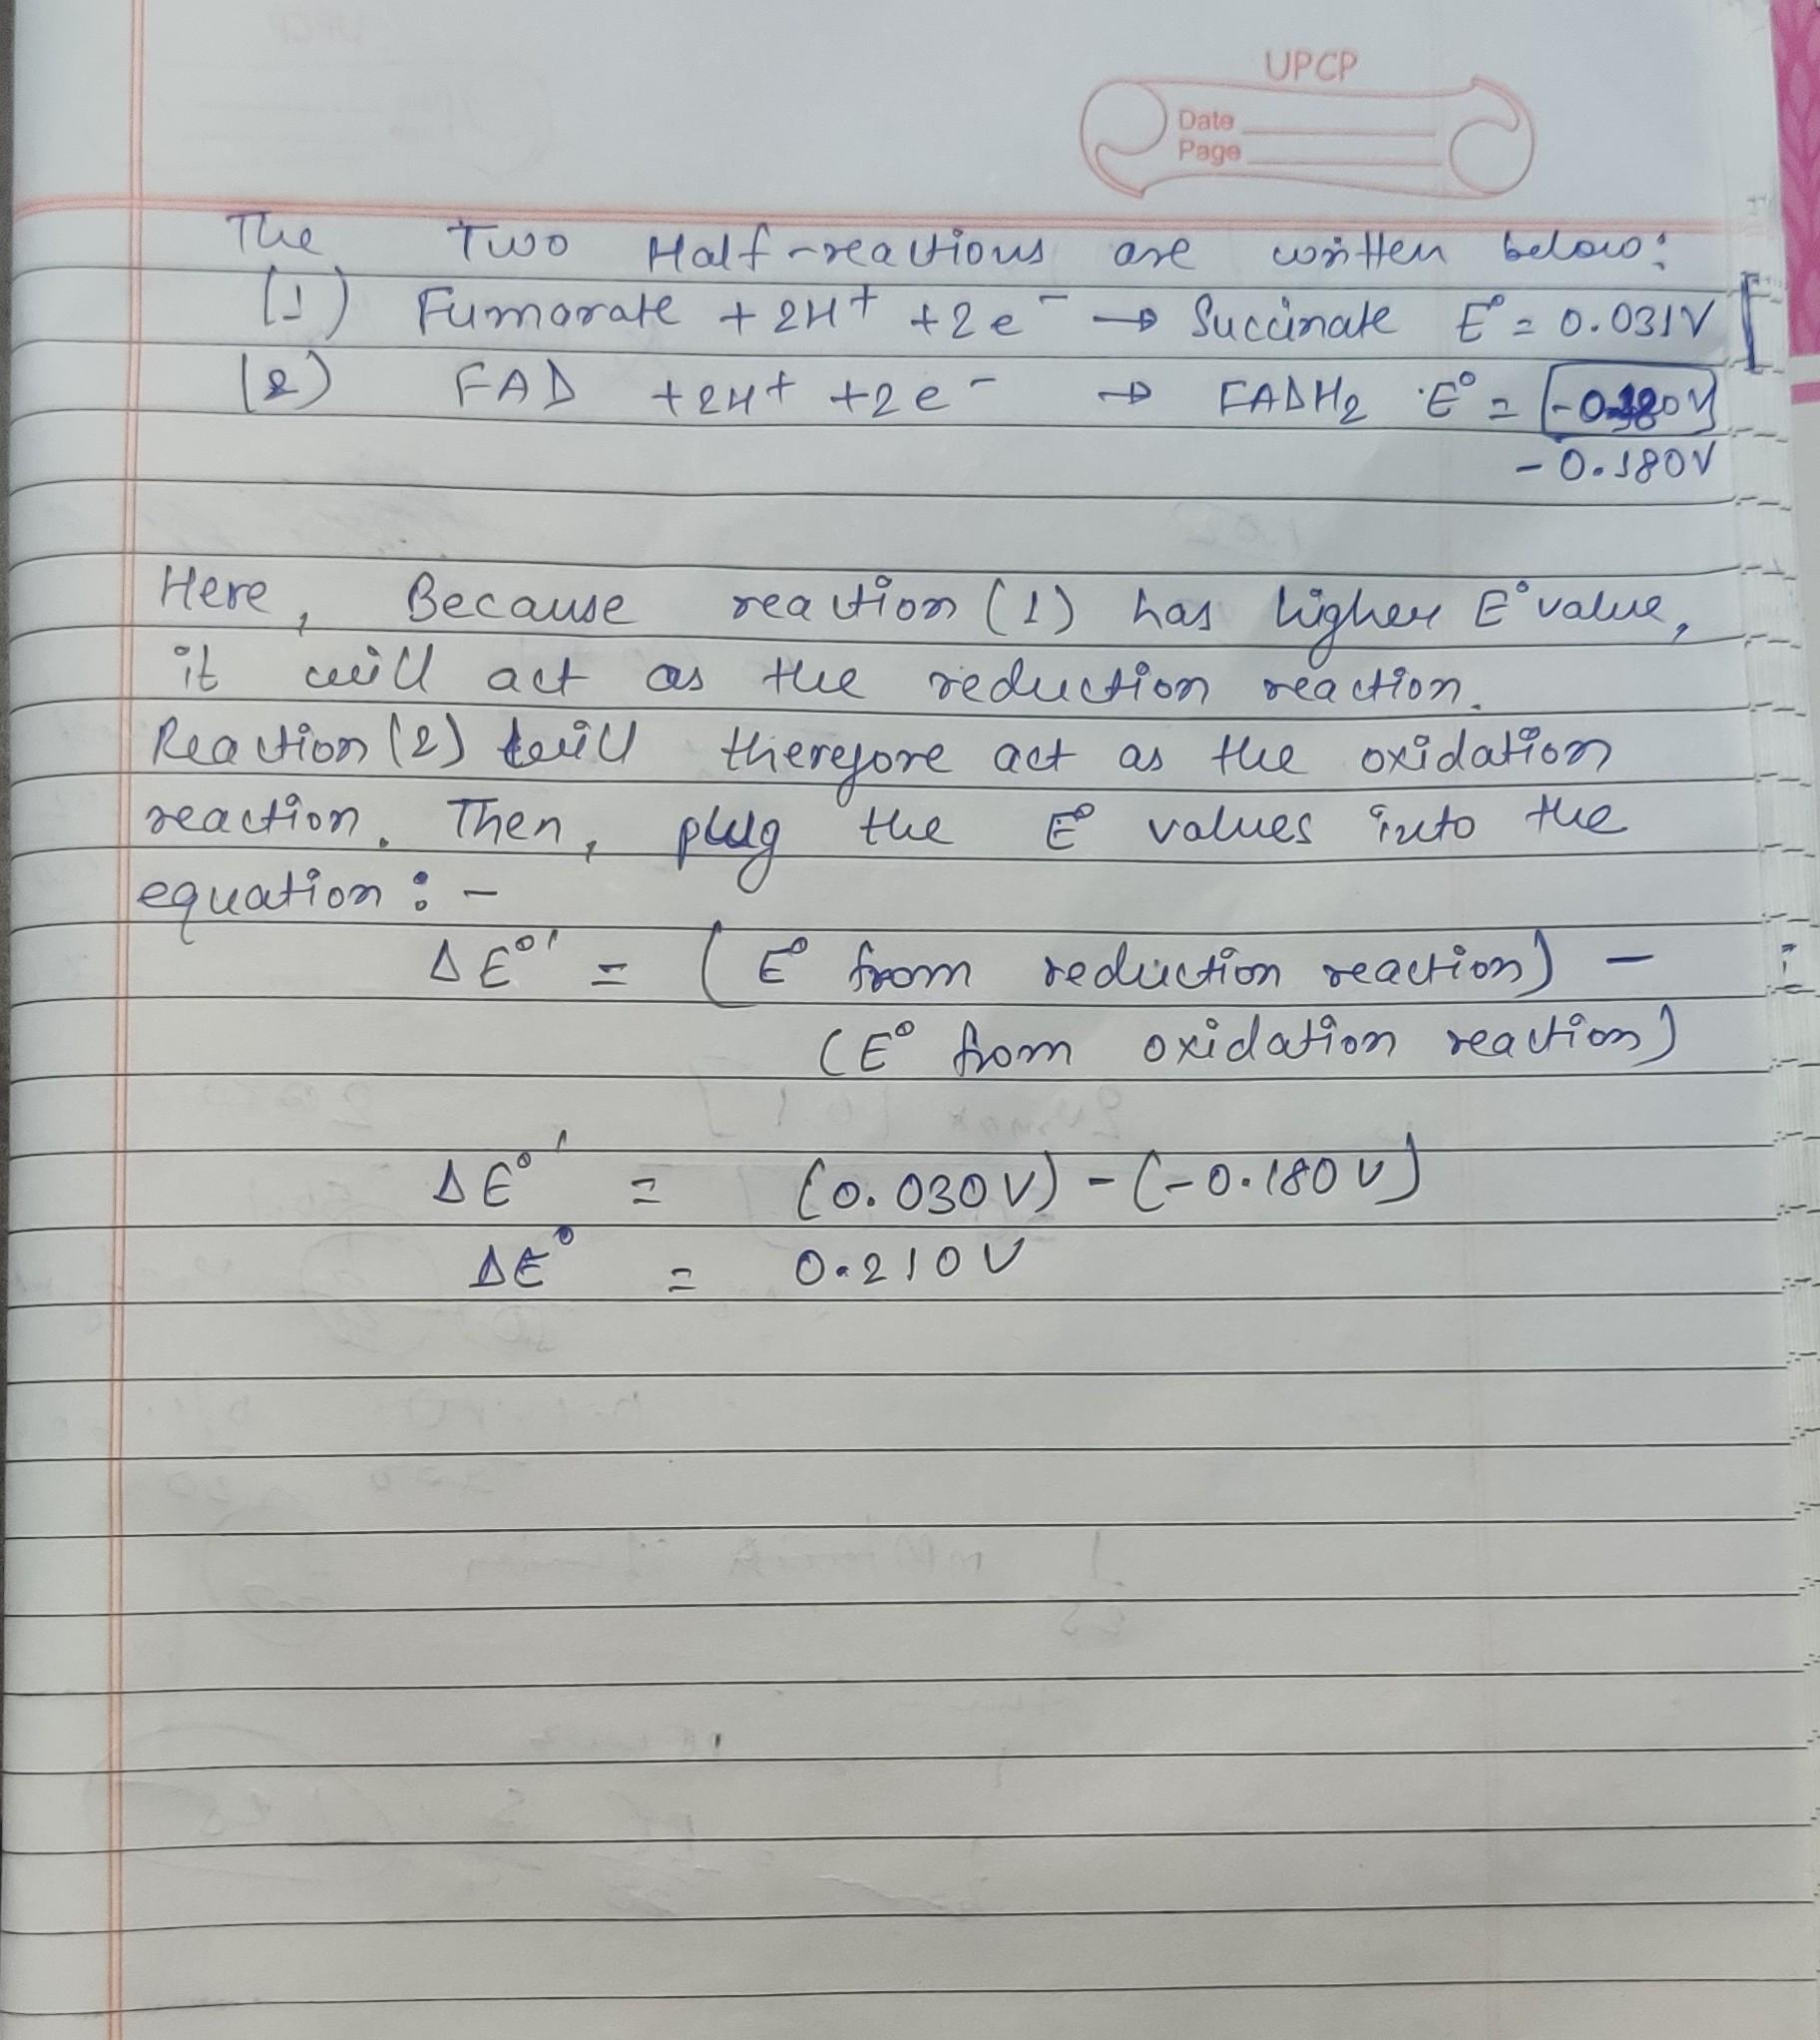 UPCP
Date
Page
The Two Half-reactions are written below:
(1) Fumarate + 2H+ + 2e- → Succinate E° = 0.031V
(2) FAD + 2H+ + 2e- → FADH2 E° = -0.180V
-0.180V
Here, Because reaction (1) has higher E° value,
it will act as the reduction reaction.
Reaction (2) will therefore act as the oxidation
reaction. Then, plug the E° values into the
equation :-
ΔE°' = (E° from reduction reaction) -
(E° from oxidation reaction)
ΔE°' = (0.030V) - (-0.180V)
ΔE° = 0.210V